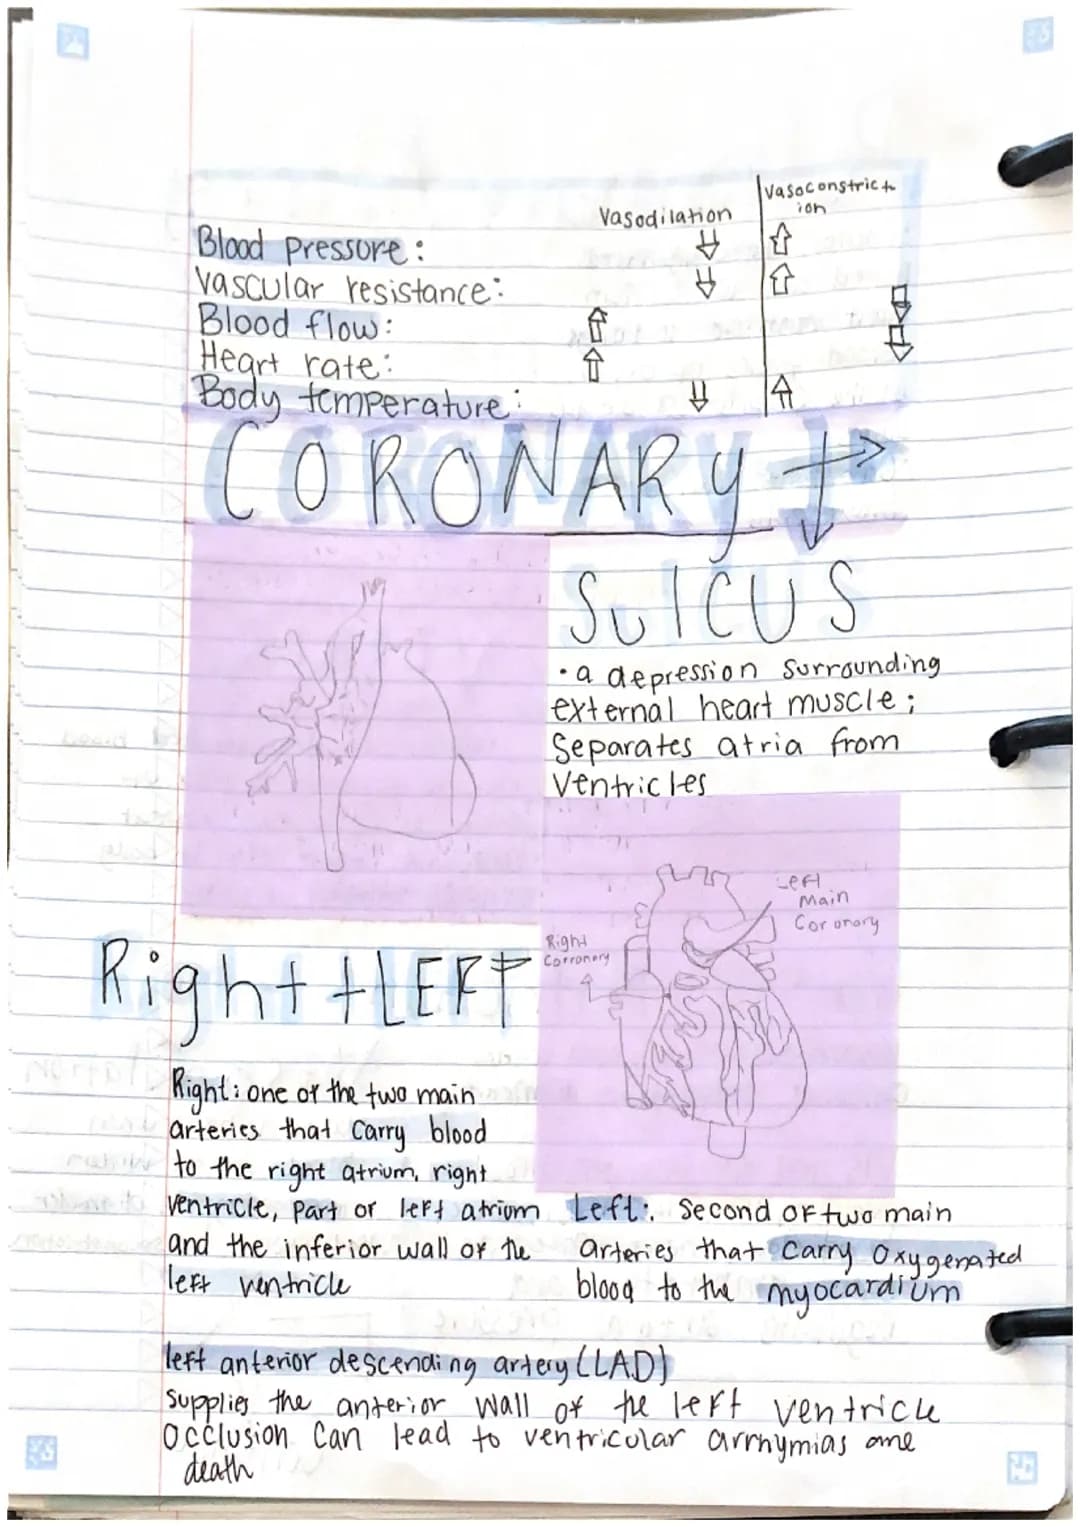 Vasodilation
Vasoconstrict
ion
Blood pressure: ⇩ ⇧
Vascular resistance: ⇩ ⇧
Blood flow: ⇧ ⇩
Heart rate: ⇧ ⇩
Body temperature: ⇩ ⇧
CORONARY
Sulcus
• a depression surrounding
external heart muscle;
Separates atria from
Ventricles
Left
Main
Coronary
Right
Corronory
Right + LEFT
Right: one of the two main
arteries that carry blood
to the right atrium, right
ventricle, part of left atrium
and the inferior wall of the
left ventricle
Left: Second of two main
arteries that carry oxygenated
blood to the myocardium
left anterior descending artery (LAD)
supplies the anterior wall of the left ventricle
Occlusion can lead to ventricular arrhymias ane
death